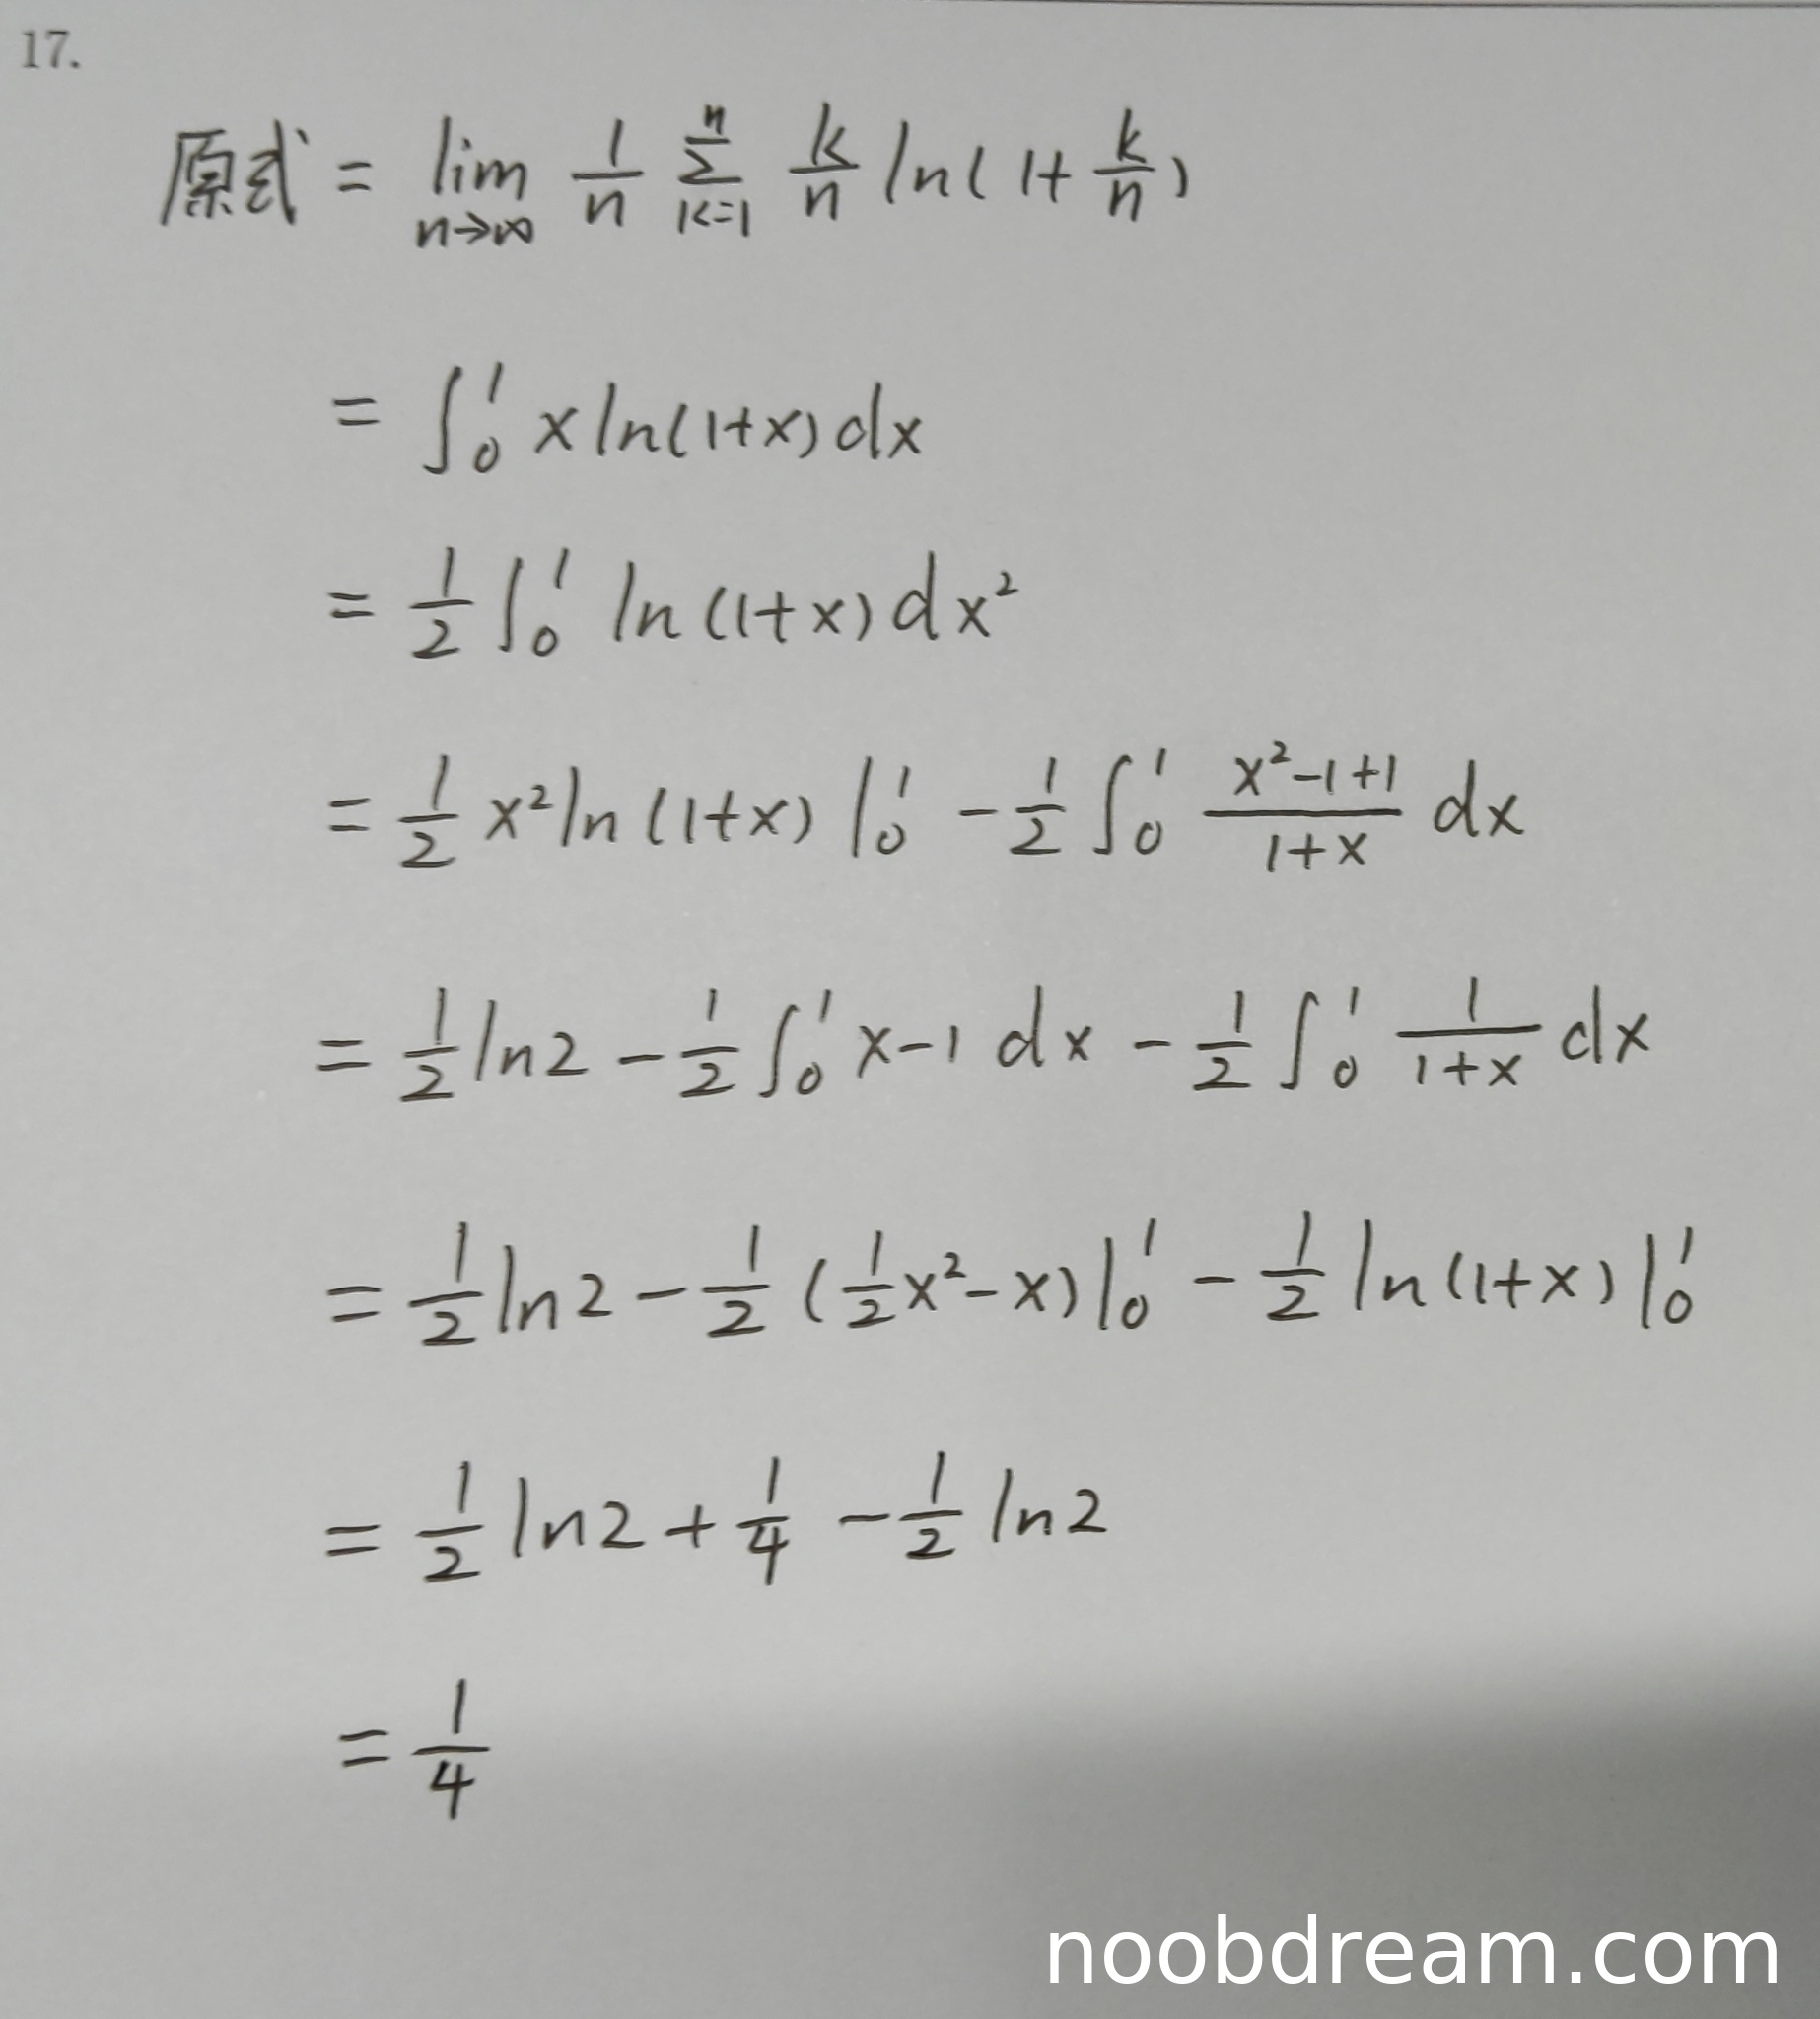 17.
原式 = lim_{n→∞} \frac{1}{n} \sum_{k=1}^{n} \frac{k}{n} ln(1+\frac{k}{n})
= ∫_0^1 x ln(1+x) dx
= \frac{1}{2} ∫_0^1 ln(1+x) dx²
= \frac{1}{2} x² ln(1+x) |_0^1 - \frac{1}{2} ∫_0^1 \frac{x²-1+1}{1+x} dx
= \frac{1}{2} ln2 - \frac{1}{2} ∫_0^1 x-1 dx - \frac{1}{2} ∫_0^1 \frac{1}{1+x} dx
= \frac{1}{2} ln2 - \frac{1}{2} (\frac{1}{2}x²-x) |_0^1 - \frac{1}{2} ln(1+x) |_0^1
= \frac{1}{2} ln2 + \frac{1}{4} - \frac{1}{2} ln2
= \frac{1}{4}
noobdream.com